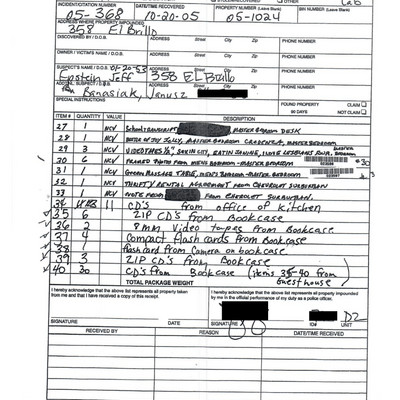 INCIDENT/CITATION NUMBER DATE/TIME RECOVERED PROPERTY NUMBER (Leave Blank) BIN NUMBER (Leave Blank)
05-368 10-20-05 05-1024
ADDRESS WHERE PROPERTY IMPOUNDED
358 El Brillo
DISCOVERED BY / D.O.B. ADDRESS Street City Zip PHONE NUMBER
OWNER / VICTIM'S NAME / D.O.B. ADDRESS Street City Zip PHONE NUMBER
SUSPECT'S NAME / D.O.B. 01-20-53 ADDRESS Street City Zip PHONE NUMBER
Epstein Jeff 358 El Brillo
ADDRESS Street City Zip PHONE NUMBER
Banasiak, Janusz
SPECIAL INSTRUCTIONS FOUND PROPERTY CLAIM
90 DAYS NOT CLAIM
ITEM # QUANTITY VALUE DESCRIPTION
27 1 NCV School transcript MASTER BEDROOM DESK
28 1 NCV
29 3 NCV
30 6 NCV FRAMED PHOTO FROM MENS BEDROOM - MASTER BEDROOM #30
31 1 NCV GREEN MASSAGE TABLE, MENS BEDROOM - MASTER BEDROOM
32 1 NCV THRIFTY RENTAL AGREEMENT FROM CHEVROLET SUBURBAN
33 1 NCV NOTE FROM FROM CHEVROLET SUBURBAN
34 11 CD's from office of kitchen
35 6 ZIP CD's from Bookcase
36 2 8mm Video tapes from Bookcase
37 4 Compact flash cards from Bookcase
38 1 flashcard from Camera on bookcase
39 3 ZIP CD's from Bookcase
40 30 CD's from Bookcase (items 35-40 from Guesthouse)
TOTAL PACKAGE WEIGHT
I hereby acknowledge that the above list represents all property taken from me and that I have received a copy of this receipt.
I hereby acknowledge that the above list represents all property impounded by me in the official performance of my duty as a police officer.
D2
SIGNATURE SIGNATURE ID# UNIT
RECEIVED BY REASON DATE/TIME RECEIVED